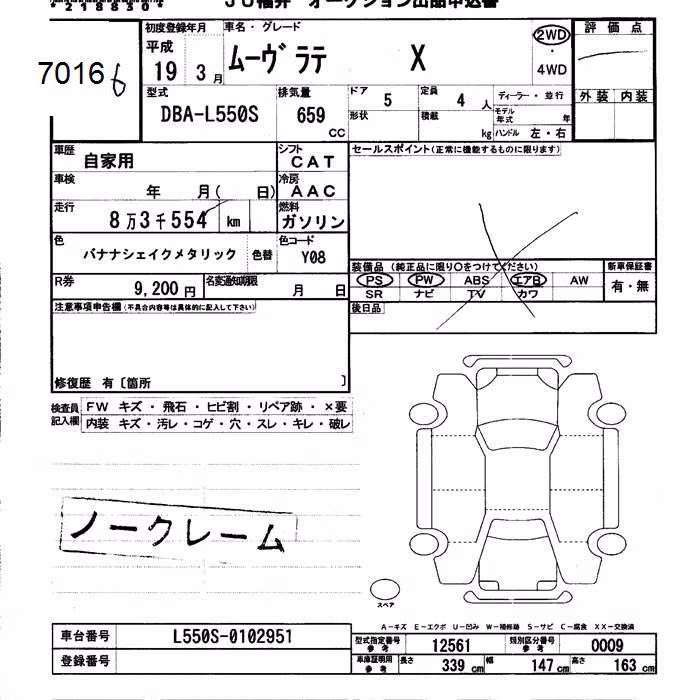 *218830*
JU福井 オークション出品申込書
70166
初度登録年月 車名・グレード 評価点
平成 19 3月
ムーヴ ラテ X
2WD・4WD
外装 内装
型式 DBA-L550S
排気量 659 CC
ドア 5 定員 4人 ディーラー・並行
形状 積載 kg モデル年式 年
ハンドル 左・右
車歴 自家用
シフト CAT
セールスポイント(正常に機能するものに限ります)
車検 年 月( 日)
冷房 AAC
走行 8万3千554 km
燃料 ガソリン
色 バナナシェイクメタリック 色替
色コード Y08
装備品(純正品に限り○をつけてください) 新車保証書
PS PW ABS エアB AW 有・無
SR ナビ TV カワ
R券 9,200円 名変通知期限 月 日
後日品
注意事項申告欄(不具合内容等は具体的に記入して下さい)
修復歴 有〔箇所 〕
検査員記入欄
FW キズ・飛石・ヒビ割・リペア跡・×要
内装 キズ・汚レ・コゲ・穴・スレ・キレ・破レ
ノークレーム
スペア
A-キズ E-エクボ U-凹み W-補修跡 S-サビ C-腐食 XX-交換済
車台番号 L550S-0102951
登録番号
型式指定番号参考 12561 類別区分番号参考 0009
車庫証明用参考 長さ 339 cm 幅 147 cm 高さ 163 cm